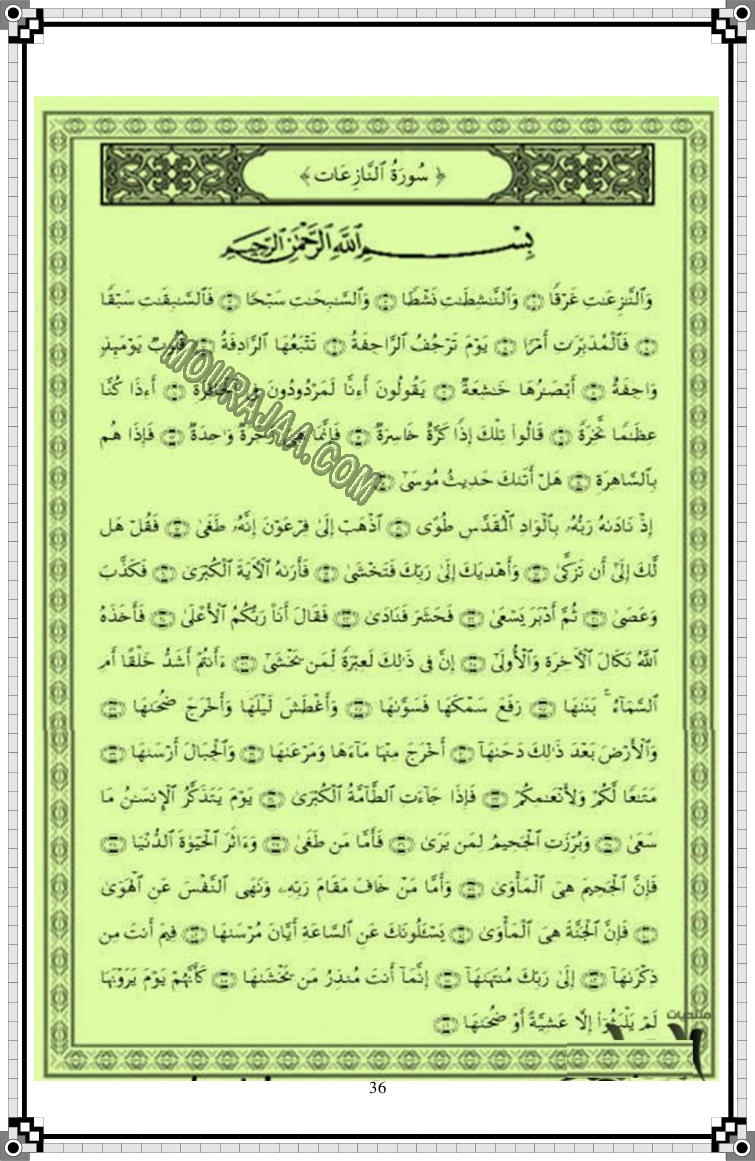 ﴿ سُورَةُ ٱلنَّازِعَات ﴾
بِسْمِ ٱللَّهِ ٱلرَّحْمَٰنِ ٱلرَّحِيمِ
وَٱلنَّٰزِعَٰتِ غَرْقًا ۝ وَٱلنَّٰشِطَٰتِ نَشْطًا ۝ وَٱلسَّٰبِحَٰتِ سَبْحًا ۝ فَٱلسَّٰبِقَٰتِ سَبْقًا
۝ فَٱلْمُدَبِّرَٰتِ أَمْرًا ۝ يَوْمَ تَرْجُفُ ٱلرَّاجِفَةُ ۝ تَتْبَعُهَا ٱلرَّادِفَةُ ۝ قُلُوبٌ يَوْمَئِذٍ
وَاجِفَةٌ ۝ أَبْصَٰرُهَا خَٰشِعَةٌ ۝ يَقُولُونَ أَءِنَّا لَمَرْدُودُونَ فِى ٱلْحَافِرَةِ ۝ أَءِذَا كُنَّا
عِظَٰمًا نَّخِرَةً ۝ قَالُوا۟ تِلْكَ إِذًا كَرَّةٌ خَاسِرَةٌ ۝ فَإِنَّمَا هِىَ زَجْرَةٌ وَٰحِدَةٌ ۝ فَإِذَا هُم
بِٱلسَّاهِرَةِ ۝ هَلْ أَتَىٰكَ حَدِيثُ مُوسَىٰٓ ۝
إِذْ نَادَىٰهُ رَبُّهُۥ بِٱلْوَادِ ٱلْمُقَدَّسِ طُوًى ۝ ٱذْهَبْ إِلَىٰ فِرْعَوْنَ إِنَّهُۥ طَغَىٰ ۝ فَقُلْ هَل
لَّكَ إِلَىٰٓ أَن تَزَكَّىٰ ۝ وَأَهْدِيَكَ إِلَىٰ رَبِّكَ فَتَخْشَىٰ ۝ فَأَرَىٰهُ ٱلْءَايَةَ ٱلْكُبْرَىٰ ۝ فَكَذَّبَ
وَعَصَىٰ ۝ ثُمَّ أَدْبَرَ يَسْعَىٰ ۝ فَحَشَرَ فَنَادَىٰ ۝ فَقَالَ أَنَا۠ رَبُّكُمُ ٱلْأَعْلَىٰ ۝ فَأَخَذَهُ
ٱللَّهُ نَكَالَ ٱلْءَاخِرَةِ وَٱلْأُولَىٰٓ ۝ إِنَّ فِى ذَٰلِكَ لَعِبْرَةً لِّمَن يَخْشَىٰٓ ۝ ءَأَنتُمْ أَشَدُّ خَلْقًا أَمِ
ٱلسَّمَآءُ ۚ بَنَىٰهَا ۝ رَفَعَ سَمْكَهَا فَسَوَّىٰهَا ۝ وَأَغْطَشَ لَيْلَهَا وَأَخْرَجَ ضُحَىٰهَا ۝
وَٱلْأَرْضَ بَعْدَ ذَٰلِكَ دَحَىٰهَآ ۝ أَخْرَجَ مِنْهَا مَآءَهَا وَمَرْعَىٰهَا ۝ وَٱلْجِبَالَ أَرْسَىٰهَا ۝
مَتَٰعًا لَّكُمْ وَلِأَنْعَٰمِكُمْ ۝ فَإِذَا جَآءَتِ ٱلطَّآمَّةُ ٱلْكُبْرَىٰ ۝ يَوْمَ يَتَذَكَّرُ ٱلْإِنسَٰنُ مَا
سَعَىٰ ۝ وَبُرِّزَتِ ٱلْجَحِيمُ لِمَن يَرَىٰ ۝ فَأَمَّا مَن طَغَىٰ ۝ وَءَاثَرَ ٱلْحَيَوٰةَ ٱلدُّنْيَا ۝
فَإِنَّ ٱلْجَحِيمَ هِىَ ٱلْمَأْوَىٰ ۝ وَأَمَّا مَنْ خَافَ مَقَامَ رَبِّهِۦ وَنَهَى ٱلنَّفْسَ عَنِ ٱلْهَوَىٰ
۝ فَإِنَّ ٱلْجَنَّةَ هِىَ ٱلْمَأْوَىٰ ۝ يَسْـَٔلُونَكَ عَنِ ٱلسَّاعَةِ أَيَّانَ مُرْسَىٰهَا ۝ فِيمَ أَنتَ مِن
ذِكْرَىٰهَآ ۝ إِلَىٰ رَبِّكَ مُنتَهَىٰهَآ ۝ إِنَّمَآ أَنتَ مُنذِرُ مَن يَخْشَىٰهَا ۝ كَأَنَّهُمْ يَوْمَ يَرَوْنَهَا
لَمْ يَلْبَثُوٓا۟ إِلَّا عَشِيَّةً أَوْ ضُحَىٰهَا ۝
MOURAJAA.COM
منتديات
36